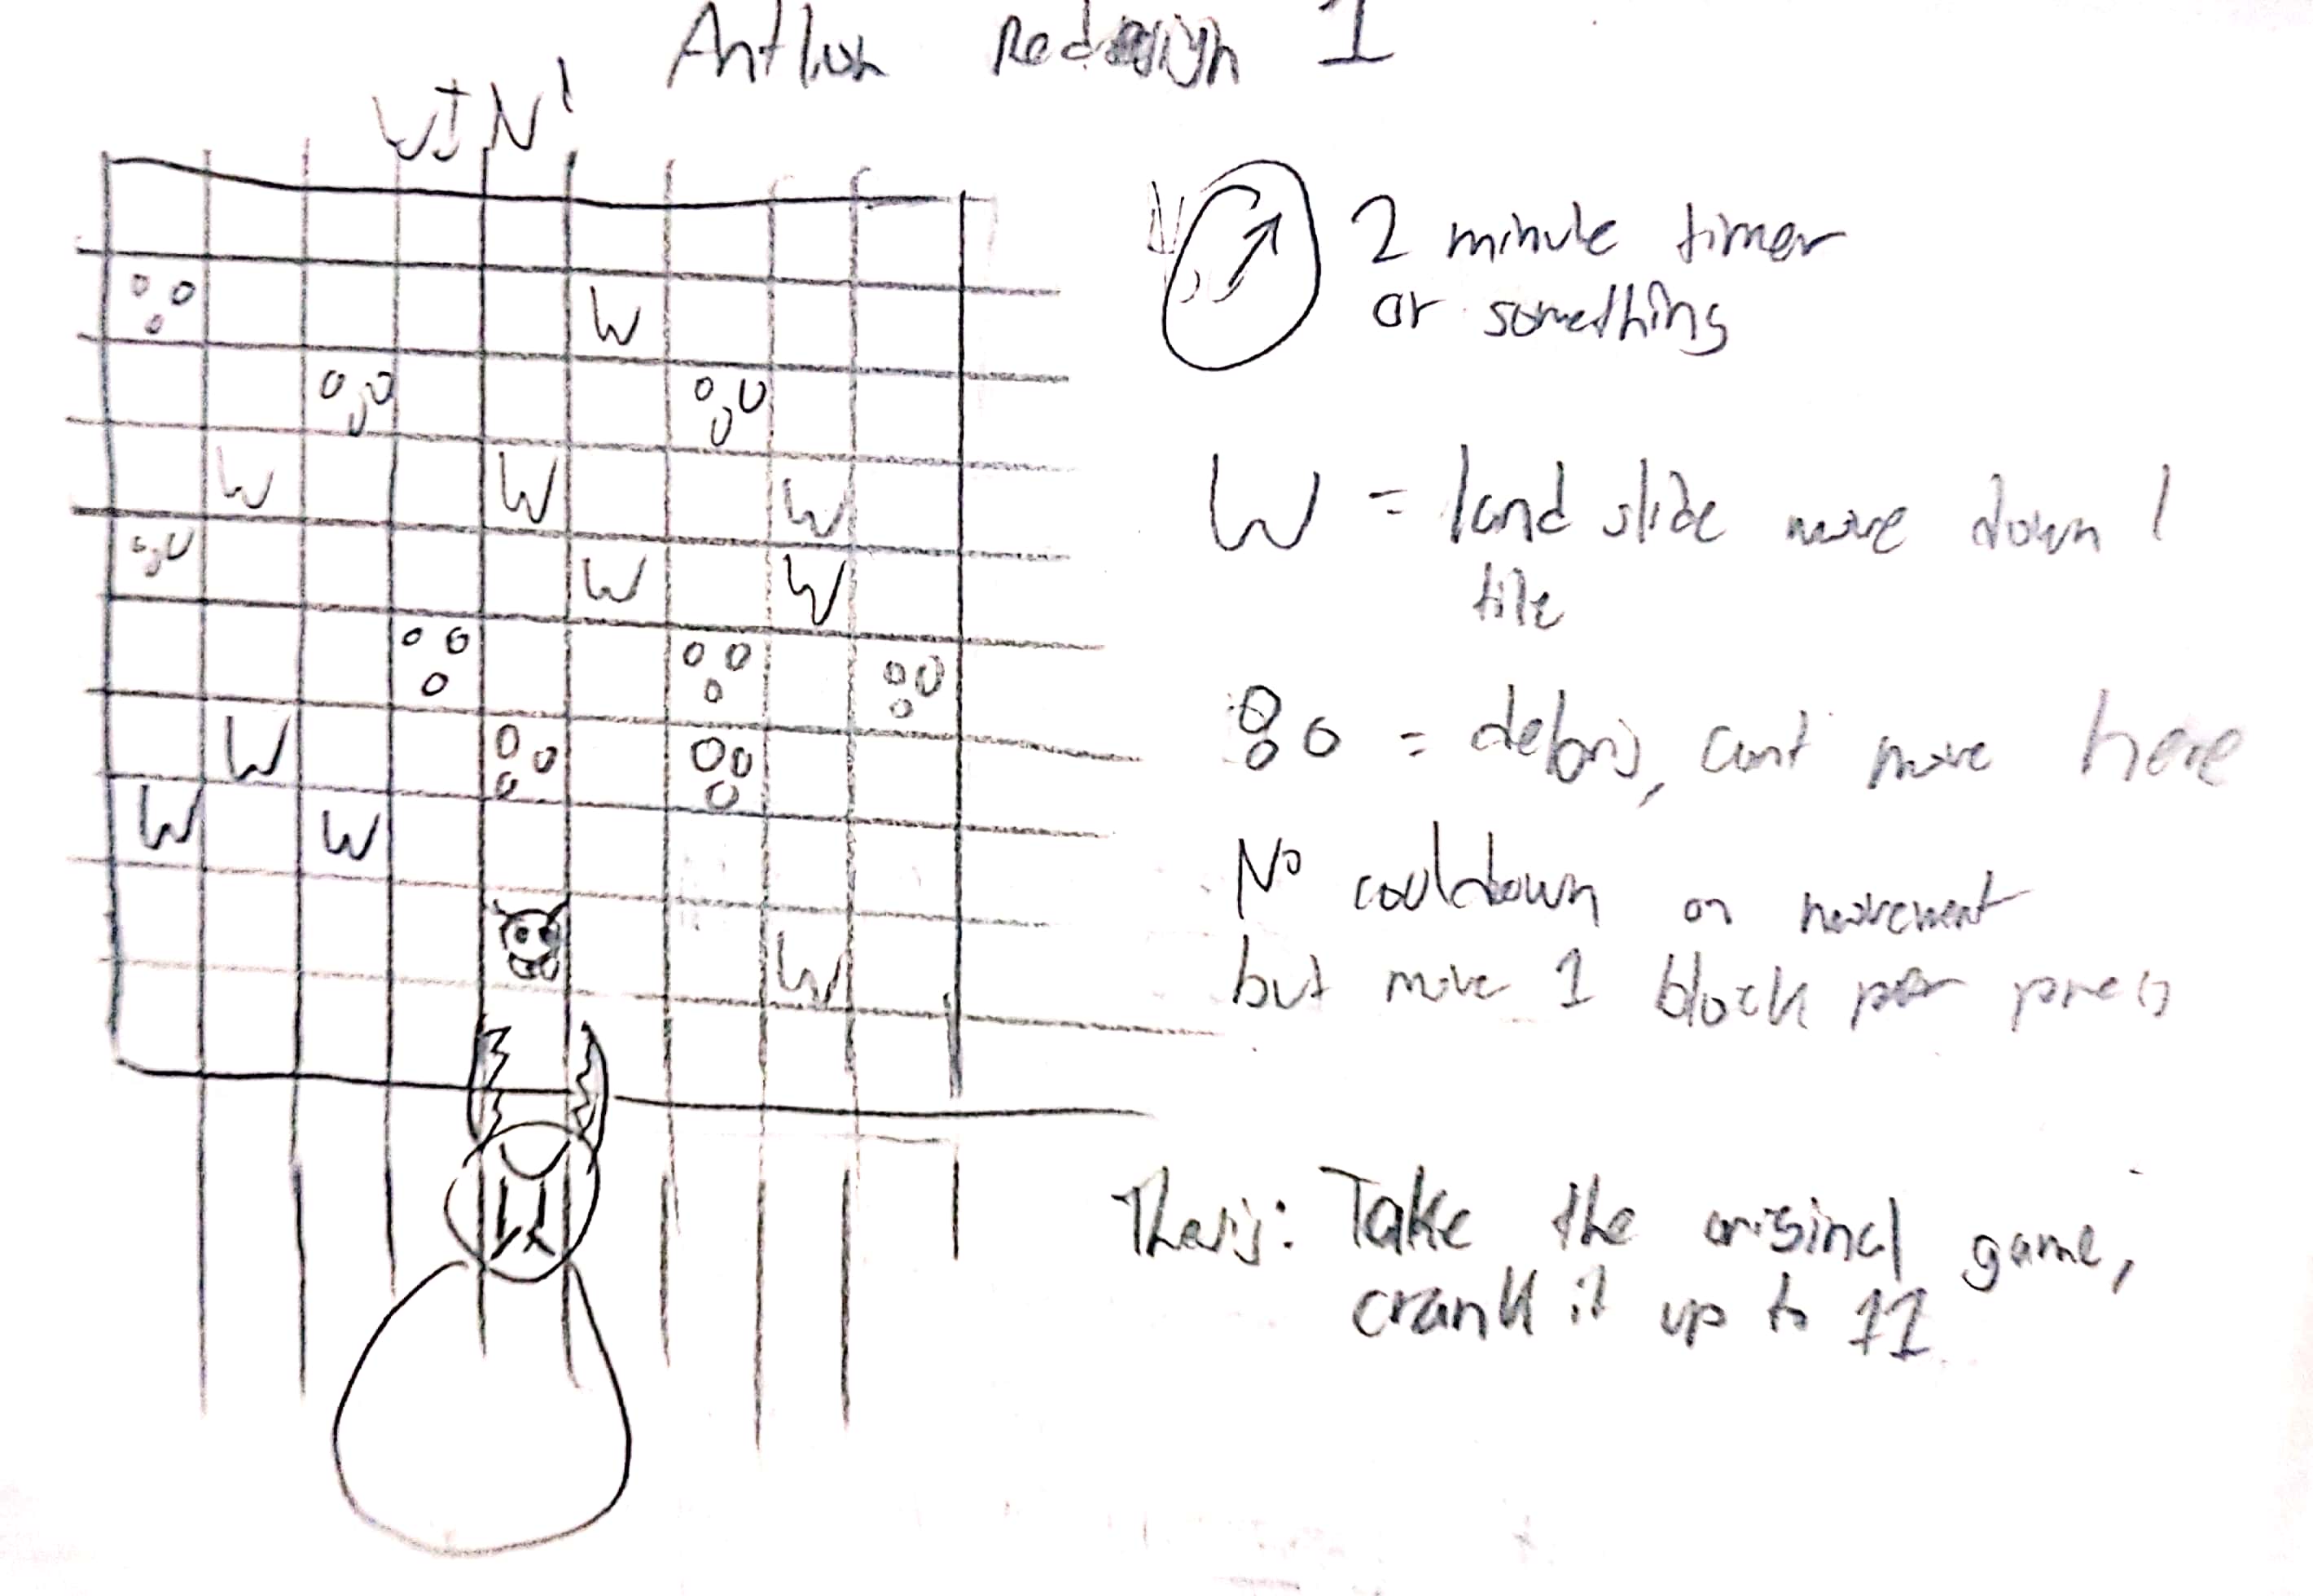 Antlion Redesign 1
WIN!
2 minute timer
or something
W
W W W
W W
W = land slide move down 1
tile
= debris, cant move here
W
W W
No cooldown on movement
but move 1 block per press
W
Thesis: Take the original game,
crank it up to 11